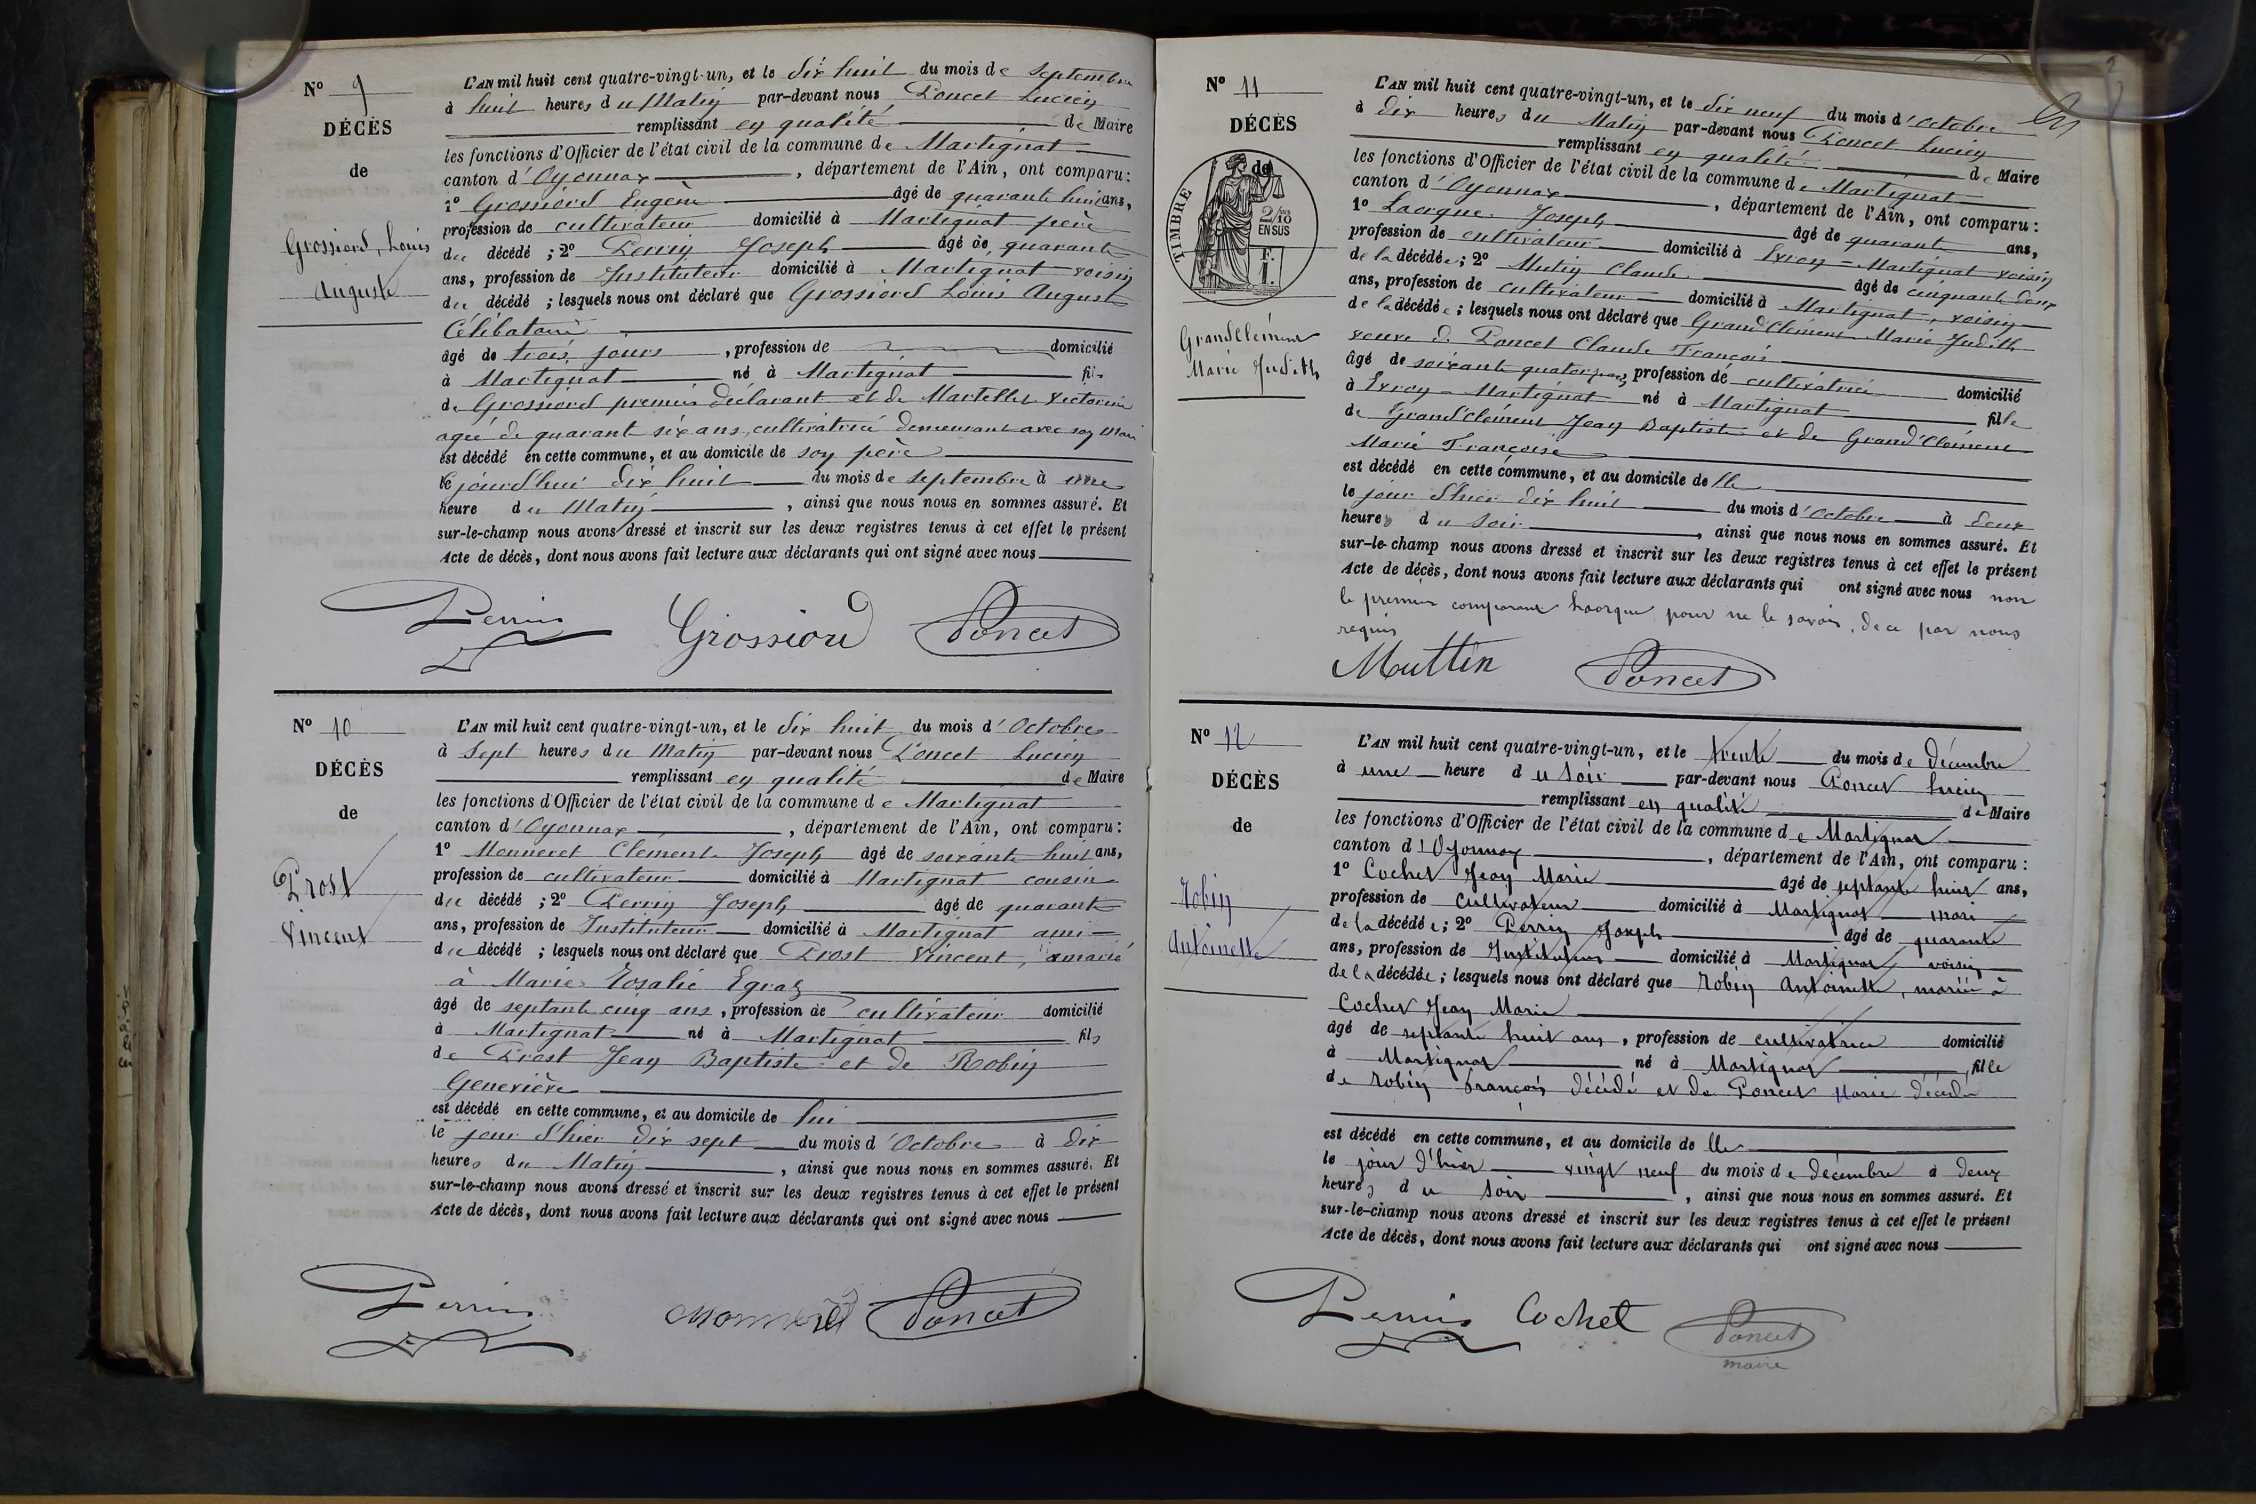 N° 9
DÉCÈS
de
Grossiord, Louis
Auguste
L'AN mil huit cent quatre-vingt-un, et le dix huit du mois de Septembre
à huit heures du Matin par-devant nous Poncet Lucien
remplissant en qualité de Maire
les fonctions d'Officier de l'état civil de la commune de Martignat
canton d'Oyonnax, département de l'Ain, ont comparu:
1° Grossiord Eugène âgé de quarante huit ans,
profession de cultivateur domicilié à Martignat père
du décédé; 2° Perrin Joseph âgé de quarante
ans, profession de Instituteur domicilié à Martignat voisin
du décédé; lesquels nous ont déclaré que Grossiord Louis Auguste
Célibataire
âgé de trois jours, profession de domicilié
à Martignat né à Martignat fils
de Grossiord premier déclarant et de Martellet Victorine
agée de quarant six ans, cultivatrice demeurant avec son mari
est décédé en cette commune, et au domicile de son père
le jourd'hui dix huit du mois de Septembre à une
heure du Matin, ainsi que nous nous en sommes assuré. Et
sur-le-champ nous avons dressé et inscrit sur les deux registres tenus à cet effet le présent
Acte de décès, dont nous avons fait lecture aux déclarants qui ont signé avec nous
Perrin Grossiord Poncet
N° 10
DÉCÈS
de
Prost
Vincent
L'AN mil huit cent quatre-vingt-un, et le dix huit du mois d'Octobre
à Sept heures du Matin par-devant nous Poncet Lucien
remplissant en qualité de Maire
les fonctions d'Officier de l'état civil de la commune de Martignat
canton d'Oyonnax, département de l'Ain, ont comparu:
1° Monneret Clément Joseph âgé de soixante huit ans,
profession de cultivateur domicilié à Martignat cousin
du décédé; 2° Perrin Joseph âgé de quarante
ans, profession de Instituteur domicilié à Martignat ami
du décédé; lesquels nous ont déclaré que Prost Vincent, marié
à Marie Rosalie Egraz
âgé de septante cinq ans, profession de cultivateur domicilié
à Martignat né à Martignat fils
de Prost Jean Baptiste et de Robin
Geneviève
est décédé en cette commune, et au domicile de lui
le jour d'hier dix sept du mois d'Octobre à dix
heures du Matin, ainsi que nous nous en sommes assuré. Et
sur-le-champ nous avons dressé et inscrit sur les deux registres tenus à cet effet le présent
Acte de décès, dont nous avons fait lecture aux déclarants qui ont signé avec nous
Perrin Monneret Poncet
N° 11
DÉCÈS
de
TIMBRE
2/10
EN SUS
F.
1.
Grandclément
Marie Judith
L'AN mil huit cent quatre-vingt-un, et le dix neuf du mois d'Octobre
à dix heures du Matin par-devant nous Poncet Lucien
remplissant en qualité de Maire
les fonctions d'Officier de l'état civil de la commune de Martignat
canton d'Oyonnax, département de l'Ain, ont comparu:
1° Lacrque Joseph âgé de quarant ans,
profession de cultivateur domicilié à Evron-Martignat voisin
de la décédée; 2° Mutin Claude âgé de cinquante deux
ans, profession de cultivateur domicilié à Martignat, voisin
de la décédée; lesquels nous ont déclaré que Grandclément Marie Judith
veuve de Poncet Claude François
âgé de soixante quatorze ans, profession de cultivatrice domicilié
à Evron-Martignat né à Martignat fille
de Grandclément Jean Baptiste et de Grandclément
Marie Françoise
est décédé en cette commune, et au domicile de lle
le jour d'hier dix huit du mois d'Octobre à deux
heures du soir, ainsi que nous nous en sommes assuré. Et
sur-le-champ nous avons dressé et inscrit sur les deux registres tenus à cet effet le présent
Acte de décès, dont nous avons fait lecture aux déclarants qui ont signé avec nous non
le premier comparant pour ne le savoir, de ce par nous
requis
Muttin Poncet
N° 12
DÉCÈS
de
Robin
Antoinette
L'AN mil huit cent quatre-vingt-un, et le trente du mois de Décembre
à une heure du soir par-devant nous Poncet Lucien
remplissant en qualité de Maire
les fonctions d'Officier de l'état civil de la commune de Martignat
canton d'Oyonnax, département de l'Ain, ont comparu:
1° Cochet Jean Marie âgé de septante huit ans,
profession de cultivateur domicilié à Martignat mari
de la décédée; 2° Perrin Joseph âgé de quarante
ans, profession de Instituteur domicilié à Martignat voisin
de la décédée; lesquels nous ont déclaré que Robin Antoinette, mariée à
Cochet Jean Marie
âgé de septante huit ans, profession de cultivatrice domicilié
à Martignat né à Martignat, fille
de Robin François décédé et de Poncet Marie décédée
est décédé en cette commune, et au domicile de lle
le jour d'hier vingt neuf du mois de décembre à deux
heures du soir, ainsi que nous nous en sommes assuré. Et
sur-le-champ nous avons dressé et inscrit sur les deux registres tenus à cet effet le présent
Acte de décès, dont nous avons fait lecture aux déclarants qui ont signé avec nous
Perrin Cochet Poncet
maire